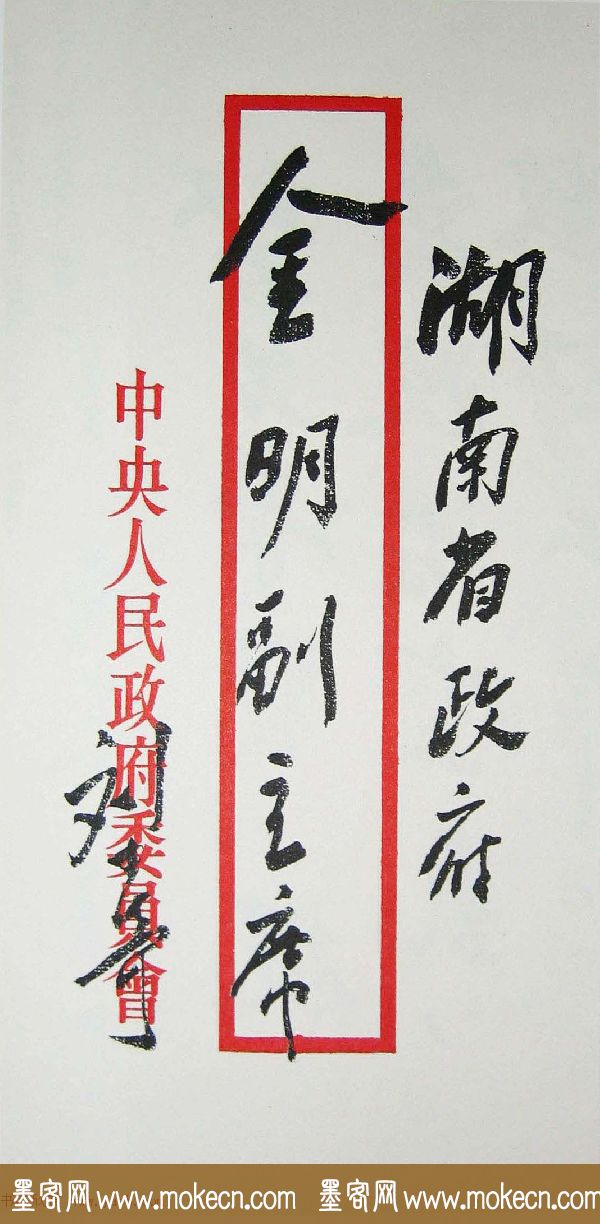 湖南省政府
金明副主席
中央人民政府委員會
刘少奇
墨客网 www.mokecn.com 墨客网 www.mokecn.com